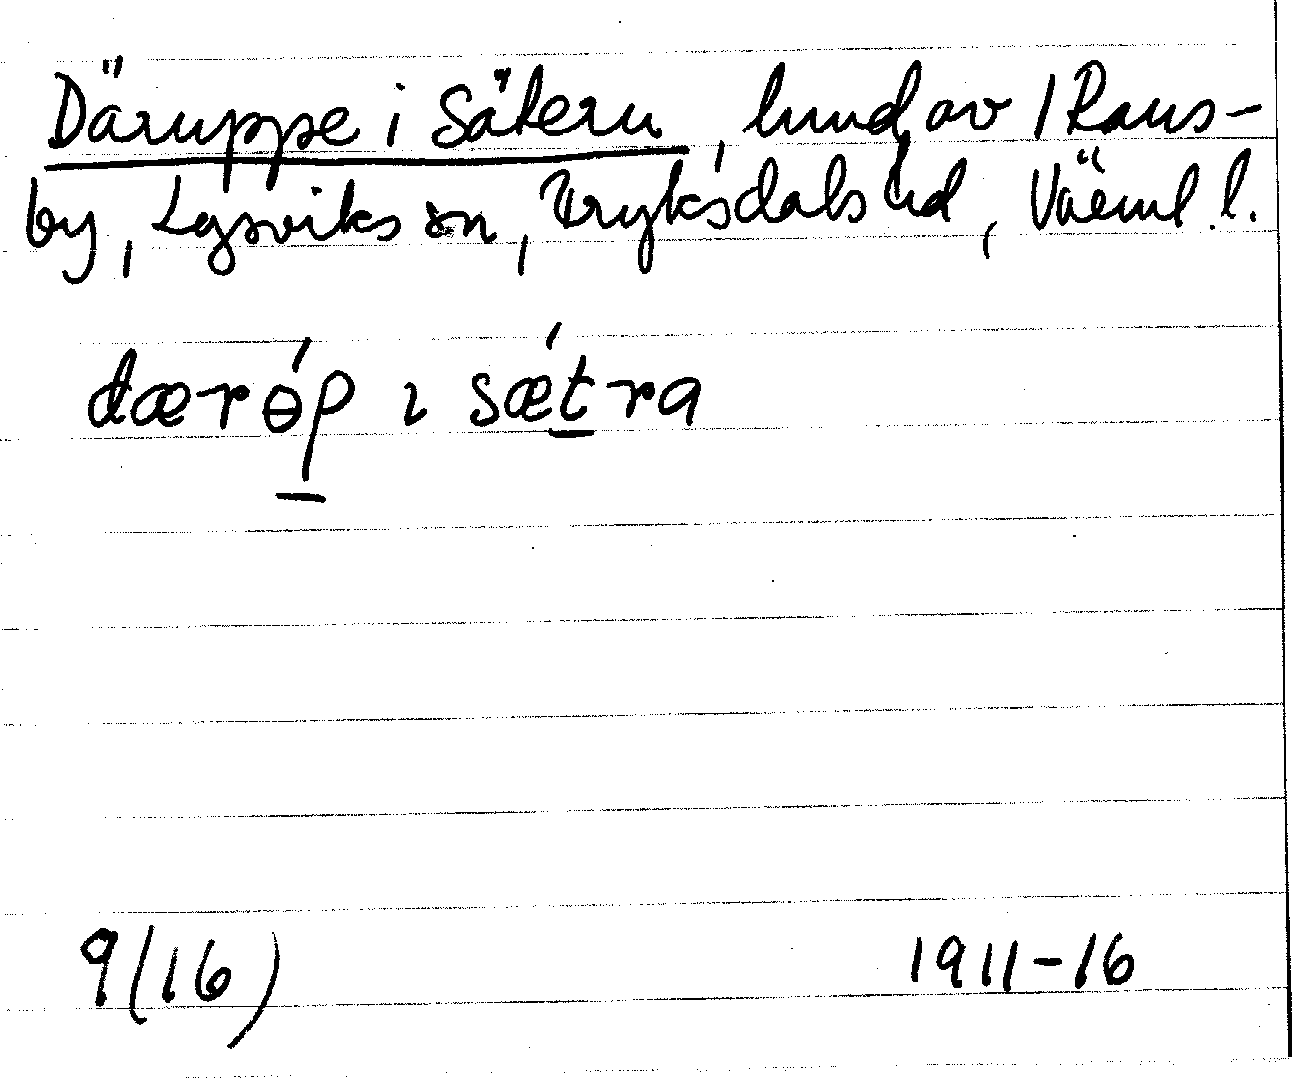 Däruppe i Sätern, lund av 1 Rans-
by, Lysviks sn, Fryksdals hd, Värml. l.
dærɵ́p ı sǽtra
9(16) 1911-16